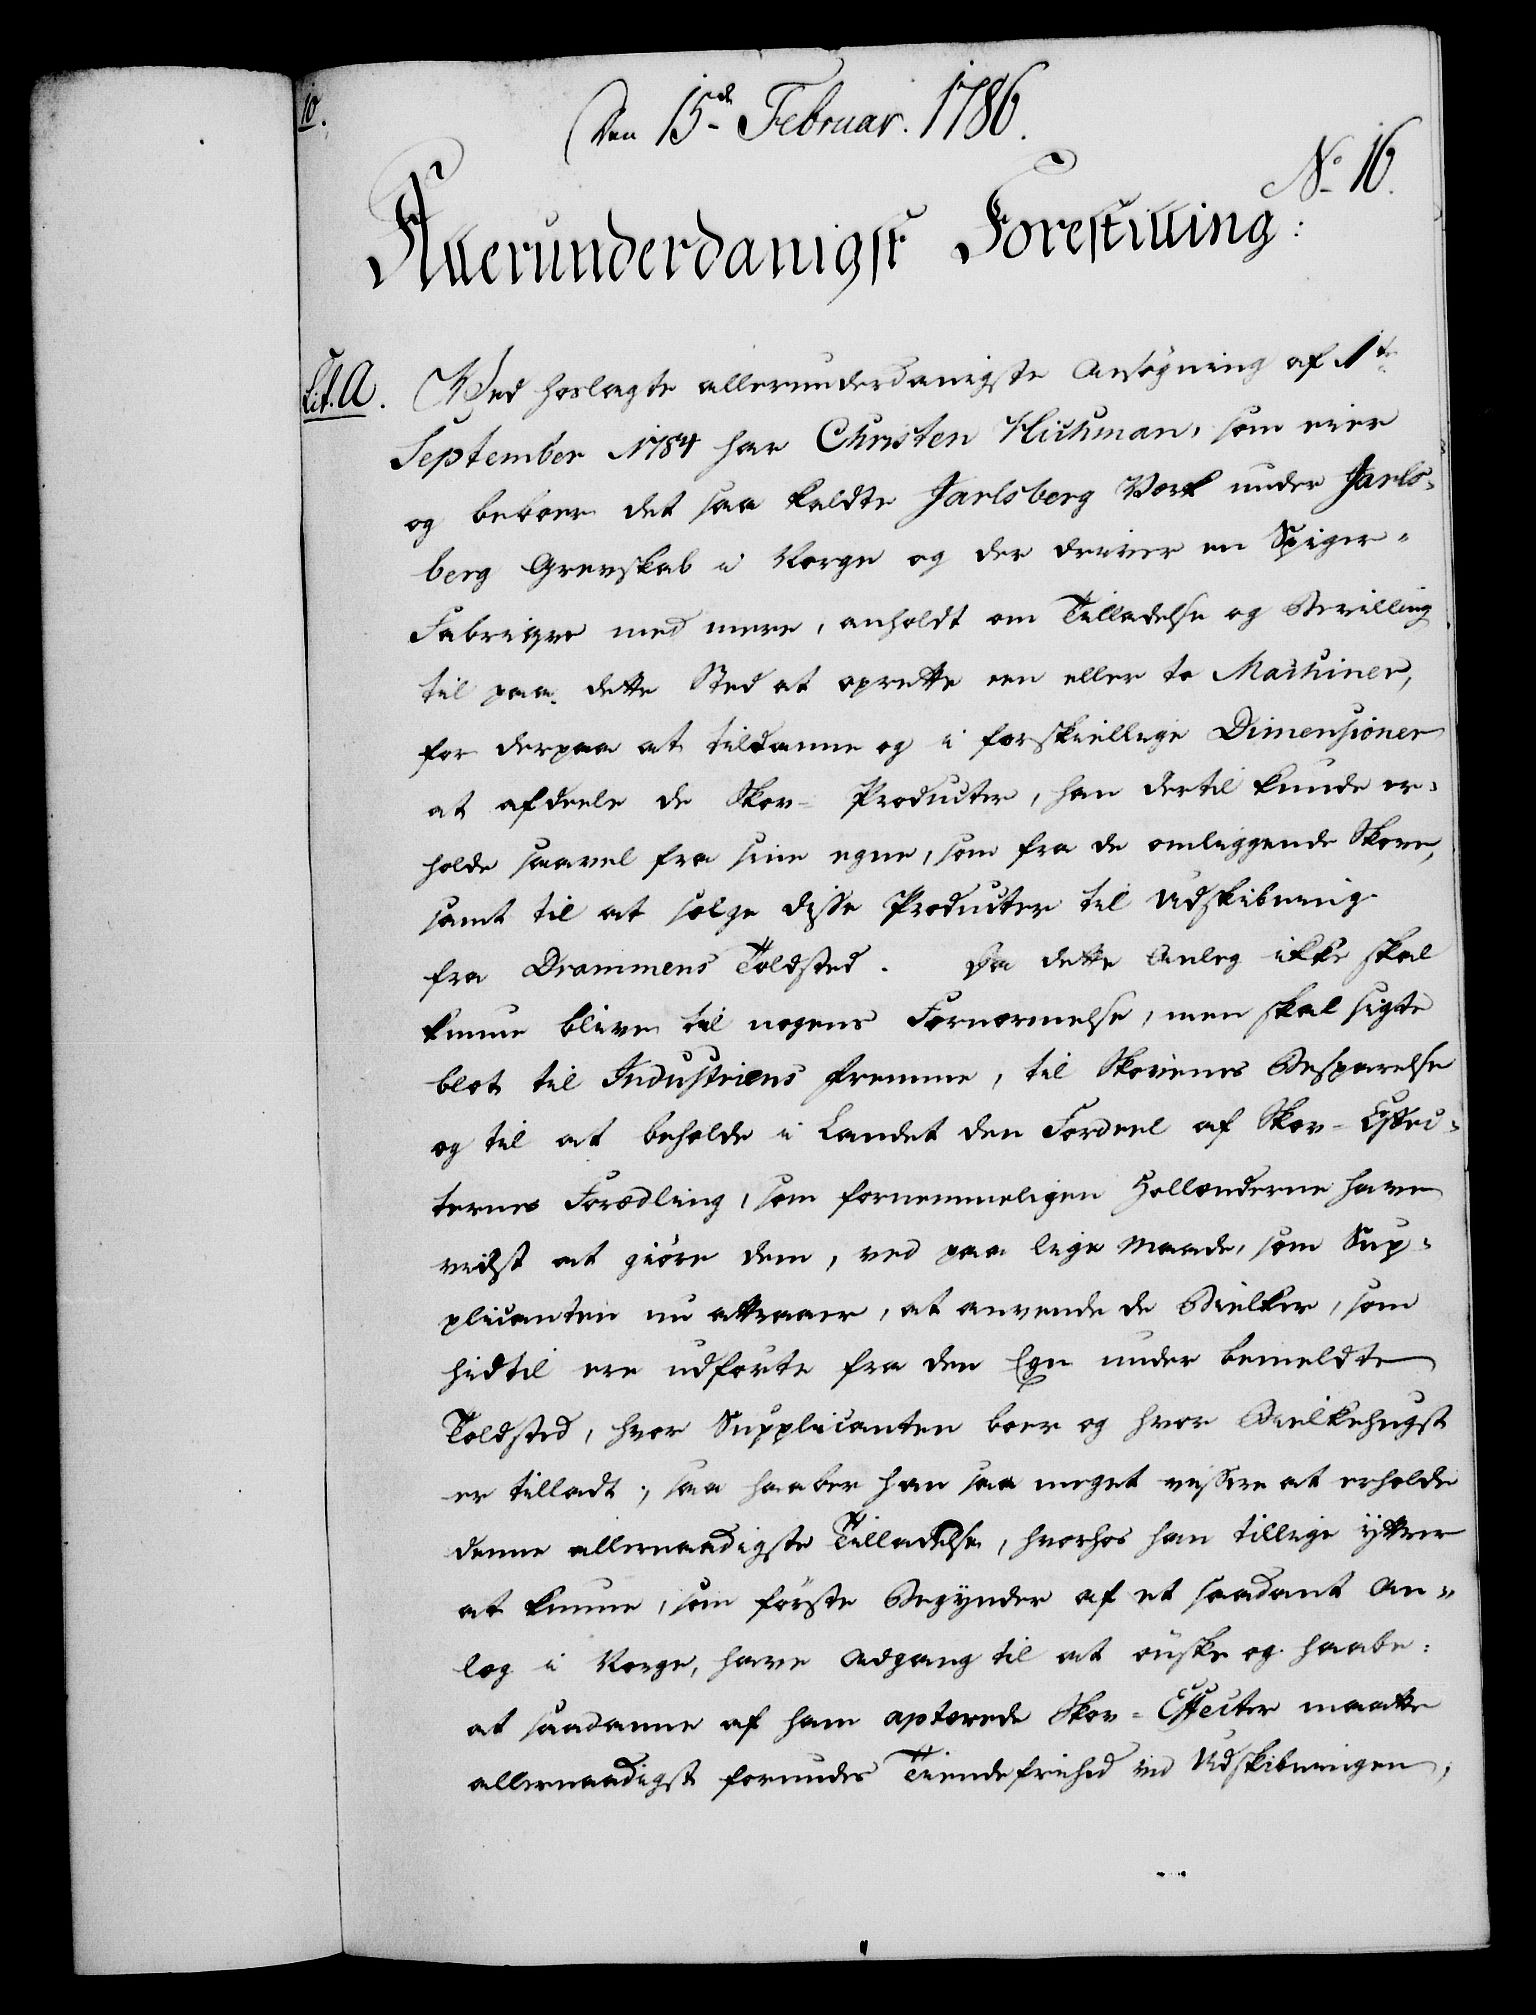 10.
Den 15de Februar. 1786.
No 16.
Allerunderdanigst Forestilling:
Lit. A. Ved hoslagte allerunderdanigste Ansøgning af 1te
September 1784 har Christen Hichman, som eier
og beboer det saa kaldte Jarlsberg Verk under Jarls-
berg Grevskab i Norge og der driver en Spiger-
Fabriqve med mere, anholdt om Tilladelse og Bevilling
til paa dette Sted at oprette een eller to Machiner,
for derpaa at tildanne og i forskiellige Dimensioner
at afdeele de Skov-Producter, han dertil kunde er-
holde saavel fra sine egne, som fra de omliggende Skove,
samt til at sælge disse Producter til Udskibning
fra Drammens Toldsted. Da dette Anlæg ikke skal
kunne blive til nogens Fornærmelse, men skal sigte
blot til Industriens Fremme, til Skovenes Besparelse
og til at beholde i Landet den Fordeel af Skov-Effec-
ternes Forædling, som fornemmeligen Hollænderne have
vidst at giöre dem, ved paa lige Maade, som Sup-
plicanten nu attraaer, at anvende de Bielker, som
hidtil ere udførte fra den Egn under bemeldte
Toldsted, hvor Supplicanten boer og hvor Bielkehugst
er tilladt; saa haaber han saa meget vissere at erholde
denne allernaadigste Tilladelse, hvorhos han tillige yttrer
at kunne, som förste Begynder af et saadant An-
læg i Norge, have Adgang til at önske og haabe:
at saadanne af ham apterede Skov-Effecter maatte
allernaadigst forundes Tiendefrihed ved Udskibningen,